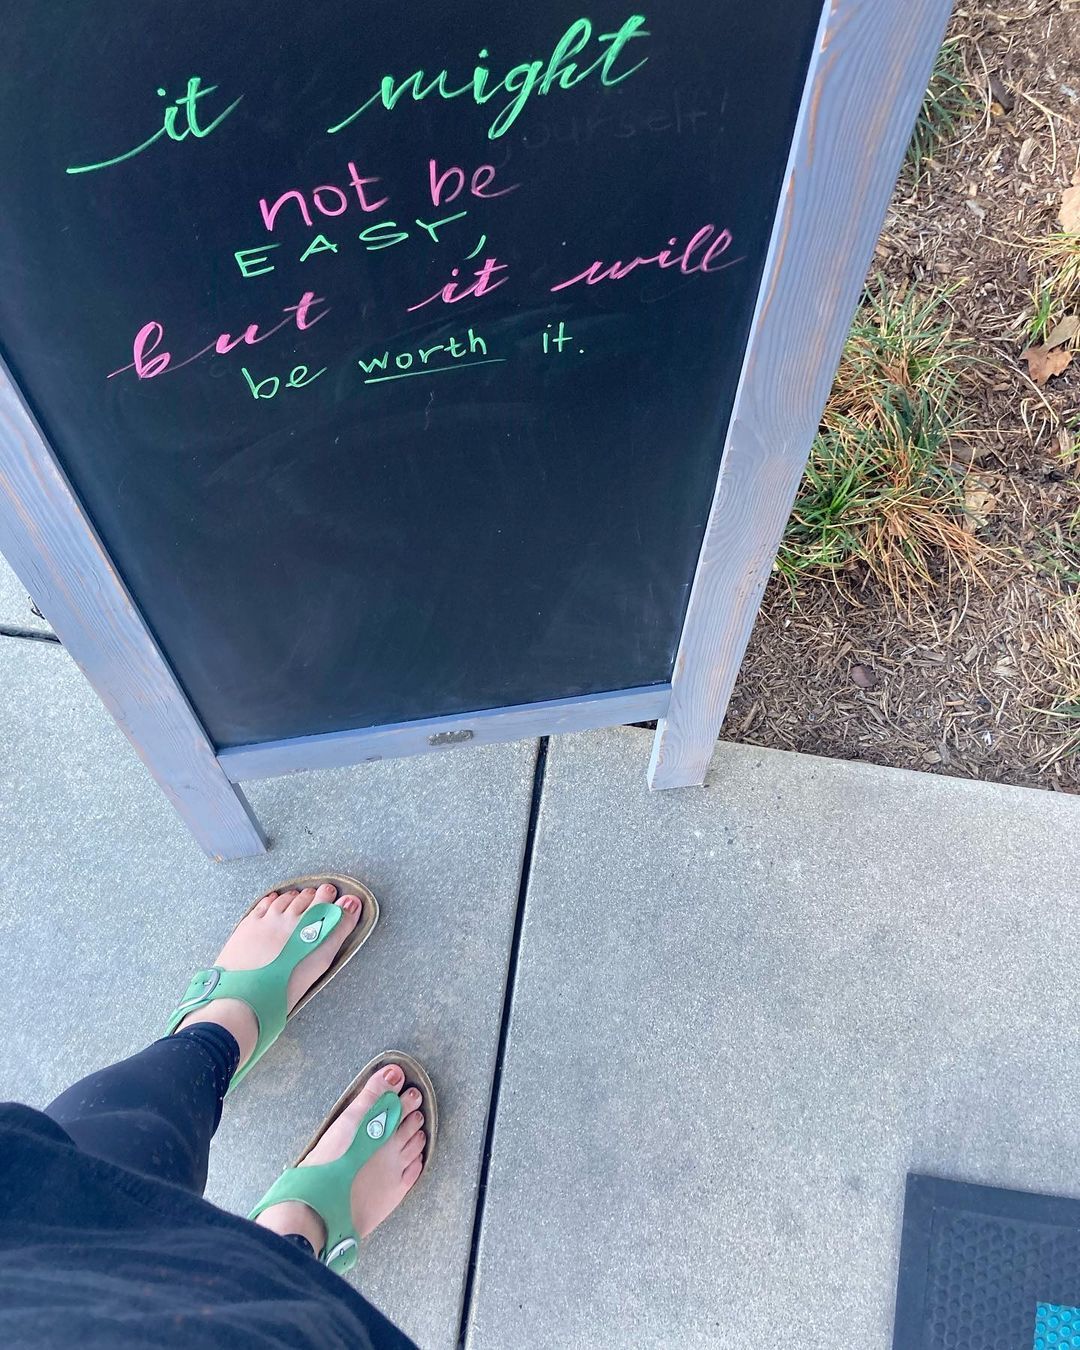 it might
yourself!
not be
EASY,
but it will
be worth it.